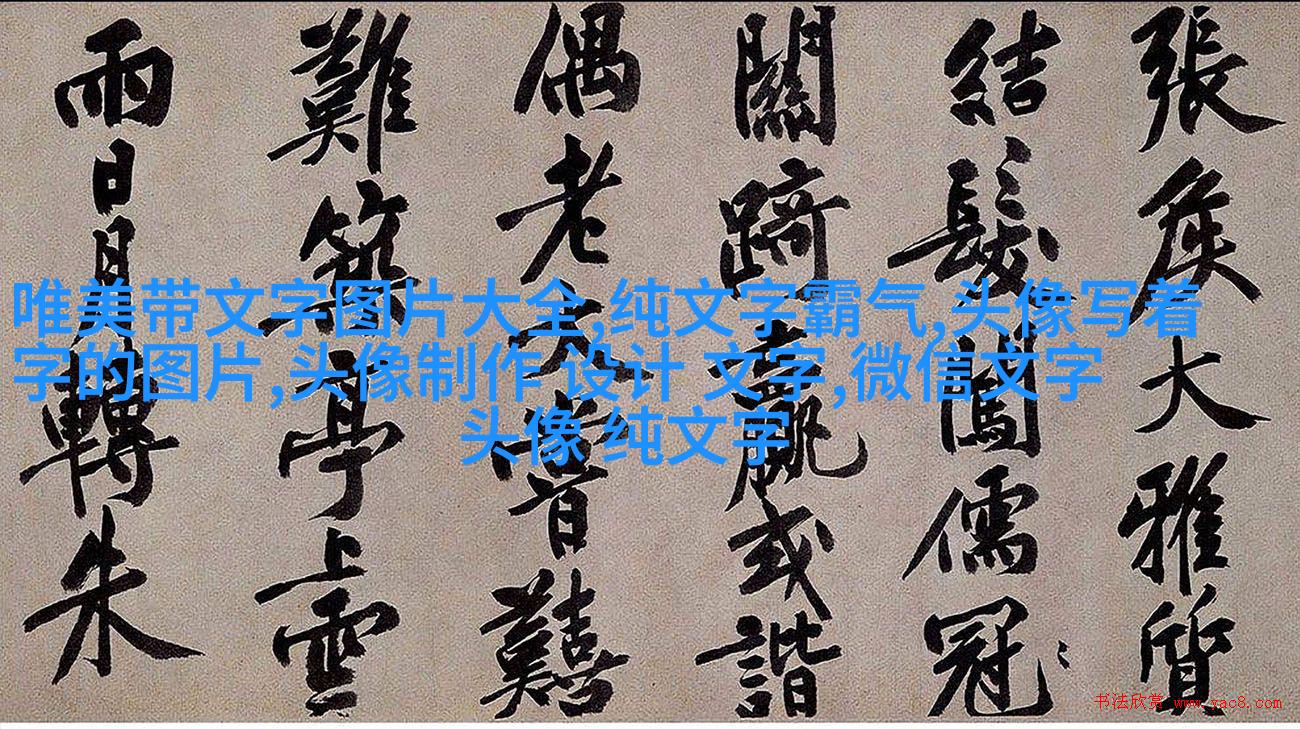 張侯大雅質
結髮闖儒冠
關踦羸或諧
偶老大嘗囏
難築亭上雲
雨日月轉朱
唯美带文字图片大全,纯文字霸气,头像写着
字的图片,头像制作 设计 文字,微信文字
头像 纯文字
书法欣赏 www.yac8.com